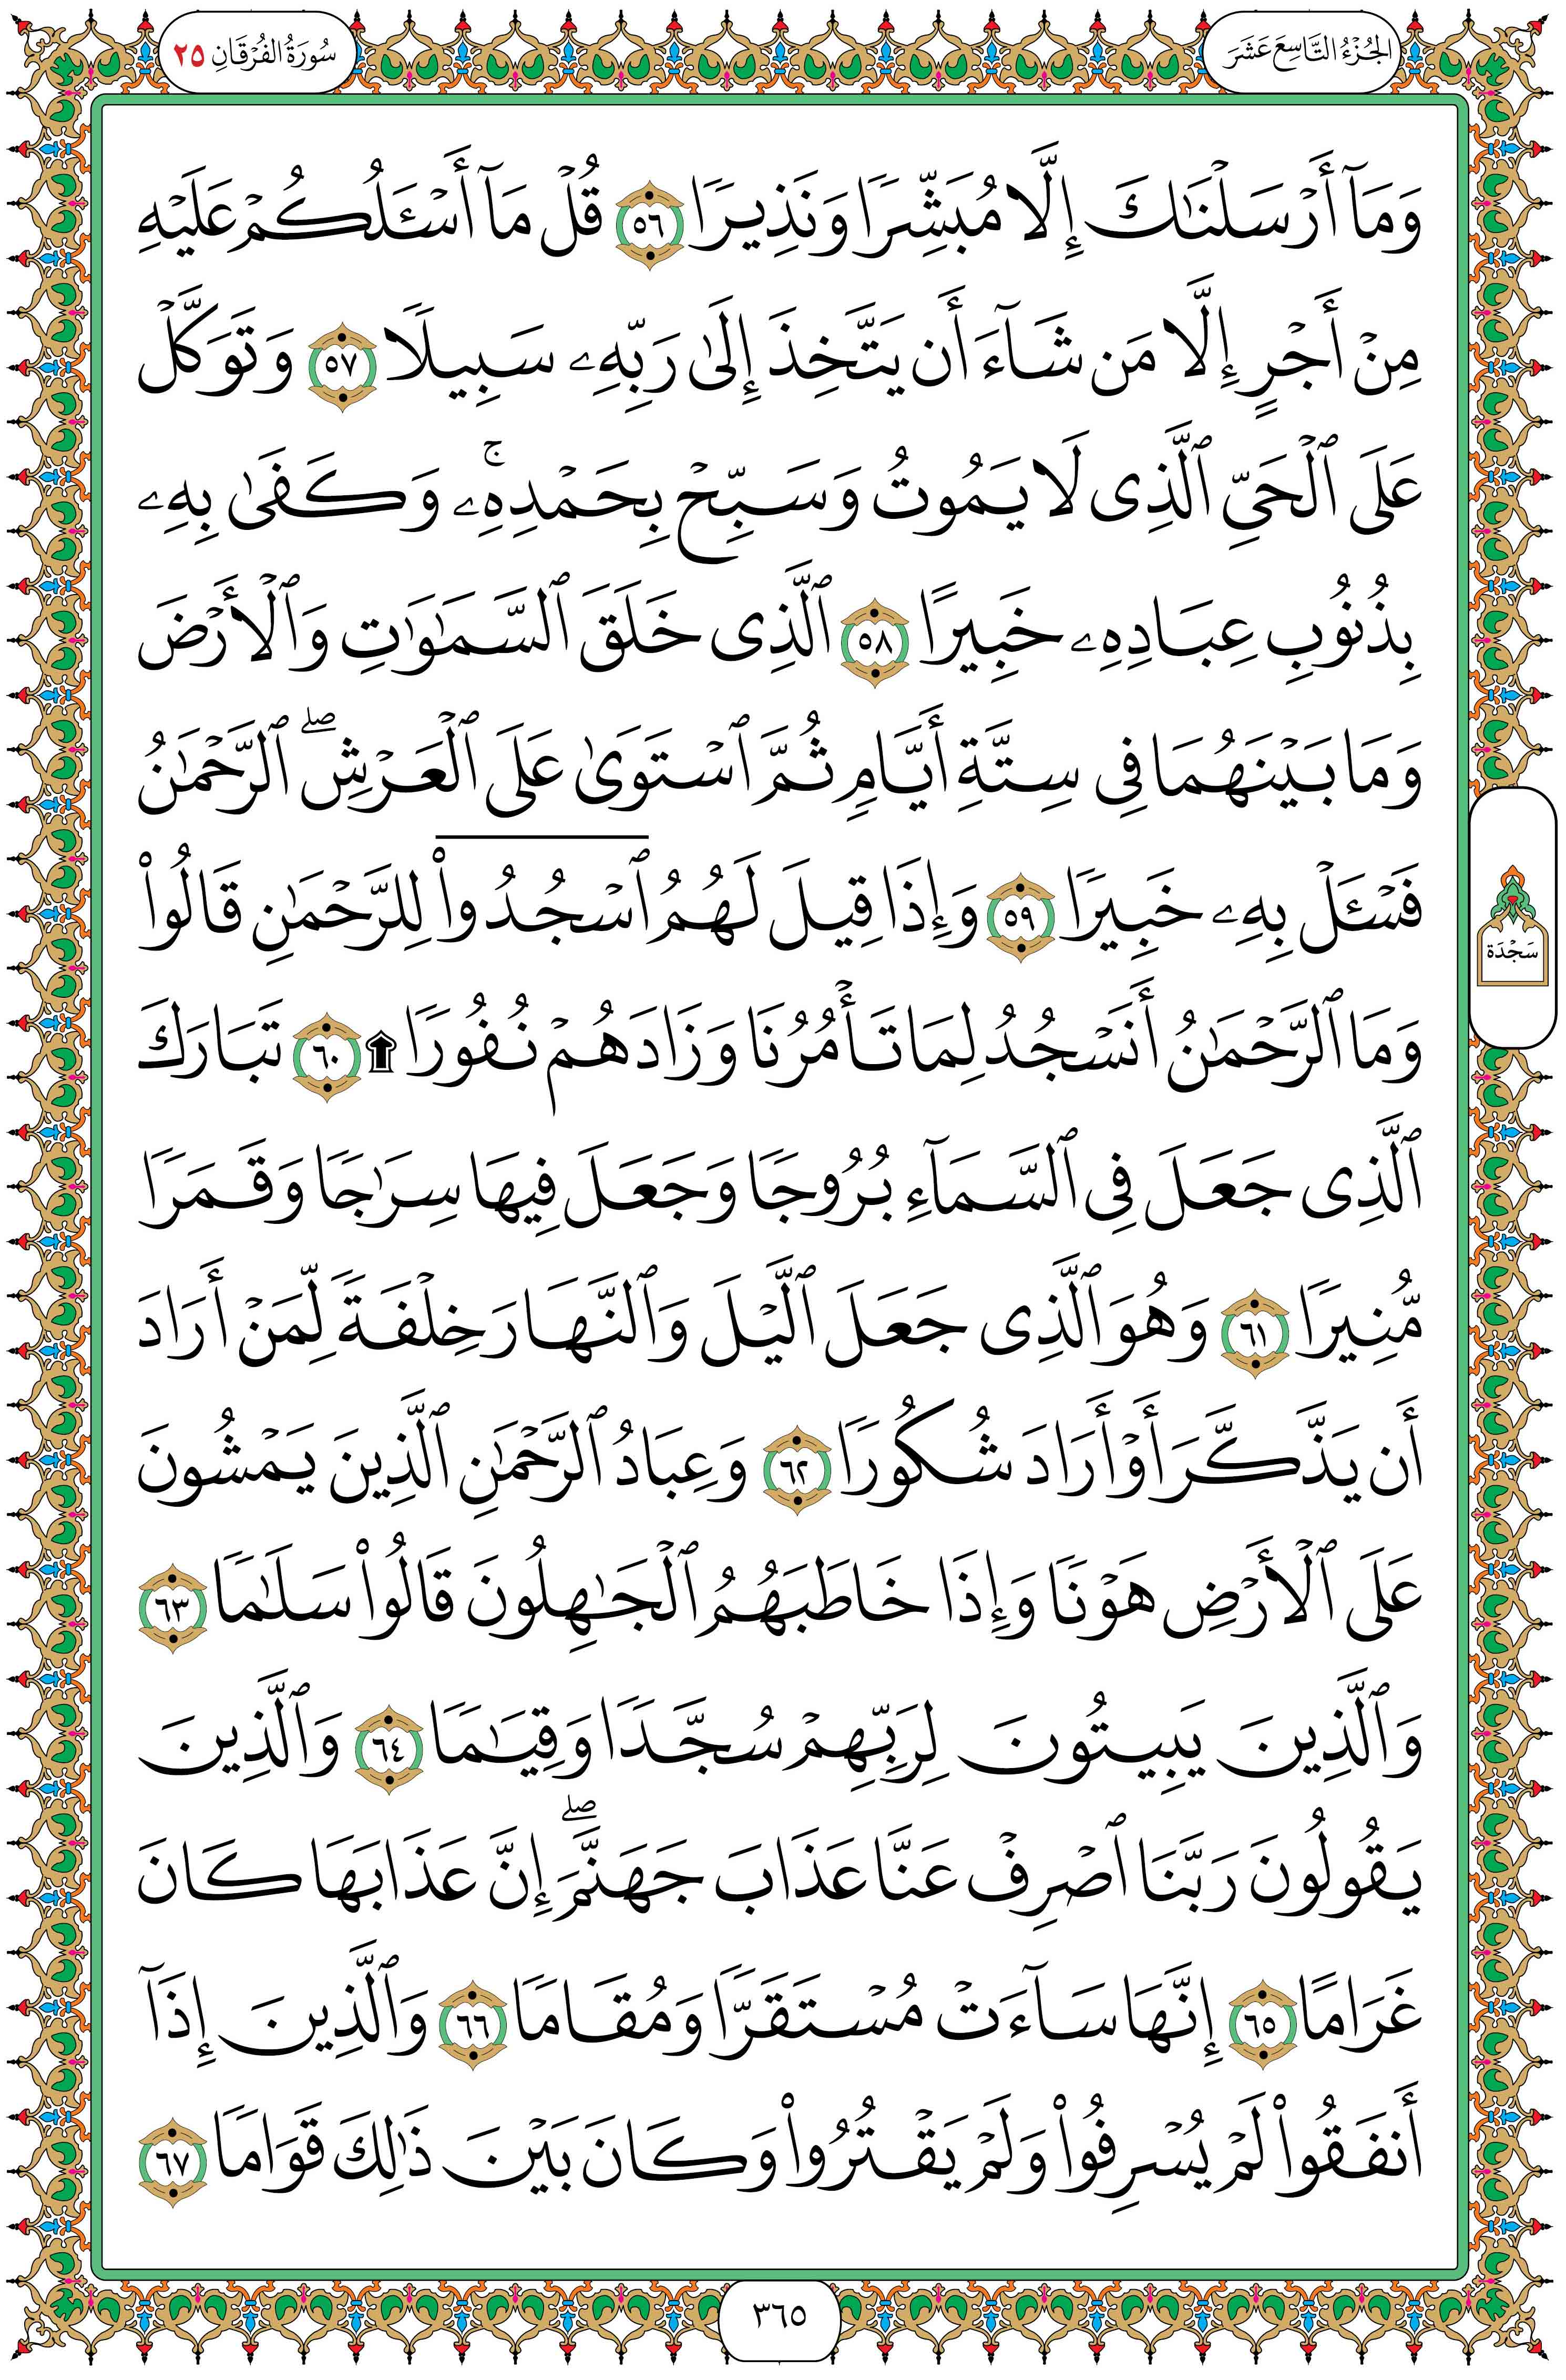 الجُزْءُ التَّاسِعَ عَشَرَ
سُورَةُ الفُرْقَانِ ٢٥
وَمَآ أَرْسَلْنَٰكَ إِلَّا مُبَشِّرًا وَنَذِيرًا ٥٦ قُلْ مَآ أَسْـَٔلُكُمْ عَلَيْهِ
مِنْ أَجْرٍ إِلَّا مَن شَآءَ أَن يَتَّخِذَ إِلَىٰ رَبِّهِۦ سَبِيلًا ٥٧ وَتَوَكَّلْ
عَلَى ٱلْحَىِّ ٱلَّذِى لَا يَمُوتُ وَسَبِّحْ بِحَمْدِهِۦ ۚ وَكَفَىٰ بِهِۦ
بِذُنُوبِ عِبَادِهِۦ خَبِيرًا ٥٨ ٱلَّذِى خَلَقَ ٱلسَّمَٰوَٰتِ وَٱلْأَرْضَ
وَمَا بَيْنَهُمَا فِى سِتَّةِ أَيَّامٍ ثُمَّ ٱسْتَوَىٰ عَلَى ٱلْعَرْشِ ۖ ٱلرَّحْمَٰنُ
فَسْـَٔلْ بِهِۦ خَبِيرًا ٥٩ وَإِذَا قِيلَ لَهُمُ ٱسْجُدُوا۟ لِلرَّحْمَٰنِ قَالُوا۟
وَمَا ٱلرَّحْمَٰنُ أَنَسْجُدُ لِمَا تَأْمُرُنَا وَزَادَهُمْ نُفُورًا ۩ ٦٠ تَبَارَكَ
ٱلَّذِى جَعَلَ فِى ٱلسَّمَآءِ بُرُوجًا وَجَعَلَ فِيهَا سِرَٰجًا وَقَمَرًا
مُّنِيرًا ٦١ وَهُوَ ٱلَّذِى جَعَلَ ٱلَّيْلَ وَٱلنَّهَارَ خِلْفَةً لِّمَنْ أَرَادَ
أَن يَذَّكَّرَ أَوْ أَرَادَ شُكُورًا ٦٢ وَعِبَادُ ٱلرَّحْمَٰنِ ٱلَّذِينَ يَمْشُونَ
عَلَى ٱلْأَرْضِ هَوْنًا وَإِذَا خَاطَبَهُمُ ٱلْجَٰهِلُونَ قَالُوا۟ سَلَٰمًا ٦٣
وَٱلَّذِينَ يَبِيتُونَ لِرَبِّهِمْ سُجَّدًا وَقِيَٰمًا ٦٤ وَٱلَّذِينَ
يَقُولُونَ رَبَّنَا ٱصْرِفْ عَنَّا عَذَابَ جَهَنَّمَ ۖ إِنَّ عَذَابَهَا كَانَ
غَرَامًا ٦٥ إِنَّهَا سَآءَتْ مُسْتَقَرًّا وَمُقَامًا ٦٦ وَٱلَّذِينَ إِذَآ
أَنفَقُوا۟ لَمْ يُسْرِفُوا۟ وَلَمْ يَقْتُرُوا۟ وَكَانَ بَيْنَ ذَٰلِكَ قَوَامًا ٦٧
سَجْدَة
٣٦٥